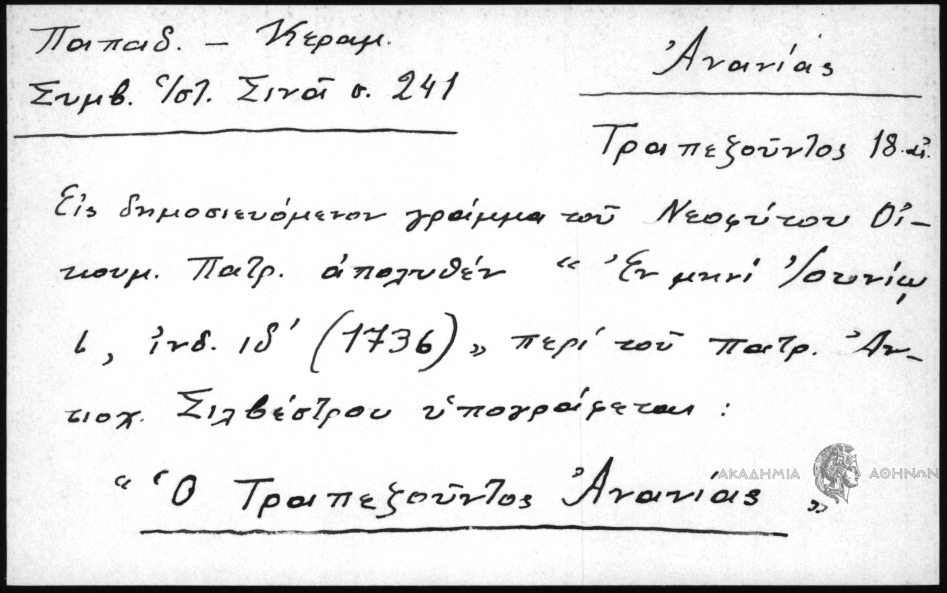 Παπαδ. – Κεραμ.
Συμβ. Ἱστ. Σινᾶ σ. 241
Ἀνανίας
Τραπεζοῦντος 18. αἰ.
Εἰς δημοσιευόμενον γράμμα τοῦ Νεοφύτου Οἰ-
κουμ. Πατρ. ἀπολυθέν “ Ἐν μηνί Ἰουνίῳ
ι, ἰνδ. ιδ' (1736) „ περί τοῦ Πατρ. Ἀν-
τιοχ. Σιλβέστρου ὑπογράφεται :
“ Ὁ Τραπεζοῦντος Ἀνανίας „
ΑΚΑΔΗΜΙΑ ΑΘΗΝΩΝ